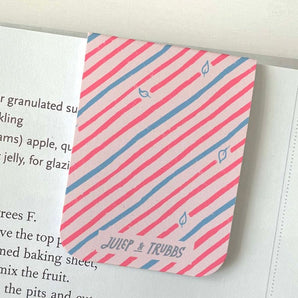 er granulated su
kling
ams) apple, qu
jelly, for glazi
JULEP & TRUBBS
trees F.
ve the top p
med baking sheet,
mix the fruit.
the pits and cu